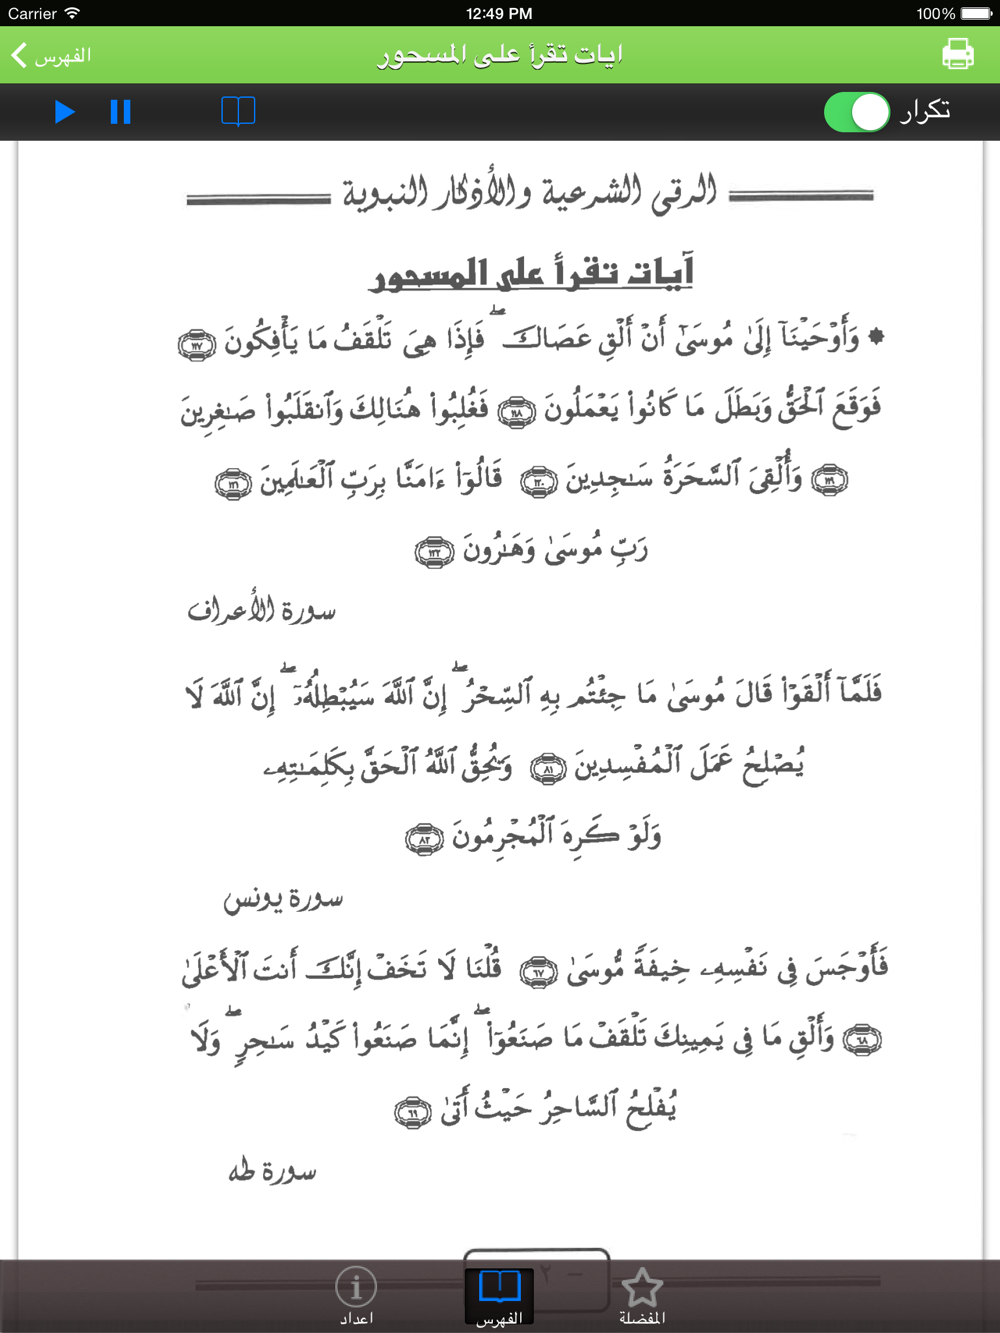 Carrier 12:49 PM 100%
الفهرس ايات تقرأ على المسحور
تكرار
الرقى الشرعية والأذكار النبوية
آيات تقرأ على المسحور
وَأَوْحَيْنَآ إِلَىٰ مُوسَىٰٓ أَنْ أَلْقِ عَصَاكَ ۖ فَإِذَا هِىَ تَلْقَفُ مَا يَأْفِكُونَ ١١٧
فَوَقَعَ ٱلْحَقُّ وَبَطَلَ مَا كَانُوا۟ يَعْمَلُونَ ١١٨ فَغُلِبُوا۟ هُنَالِكَ وَٱنقَلَبُوا۟ صَـٰغِرِينَ
١١٩ وَأُلْقِىَ ٱلسَّحَرَةُ سَـٰجِدِينَ ١٢٠ قَالُوٓا۟ ءَامَنَّا بِرَبِّ ٱلْعَـٰلَمِينَ ١٢١
رَبِّ مُوسَىٰ وَهَـٰرُونَ ١٢٢
سورة الأعراف
فَلَمَّآ أَلْقَوْا۟ قَالَ مُوسَىٰ مَا جِئْتُم بِهِ ٱلسِّحْرُ ۖ إِنَّ ٱللَّهَ سَيُبْطِلُهُۥٓ ۖ إِنَّ ٱللَّهَ لَا
يُصْلِحُ عَمَلَ ٱلْمُفْسِدِينَ ٨١ وَيُحِقُّ ٱللَّهُ ٱلْحَقَّ بِكَلِمَـٰتِهِۦ
وَلَوْ كَرِهَ ٱلْمُجْرِمُونَ ٨٢
سورة يونس
فَأَوْجَسَ فِى نَفْسِهِۦ خِيفَةً مُّوسَىٰ ٦٧ قُلْنَا لَا تَخَفْ إِنَّكَ أَنتَ ٱلْأَعْلَىٰ
٦٨ وَأَلْقِ مَا فِى يَمِينِكَ تَلْقَفْ مَا صَنَعُوٓا۟ ۖ إِنَّمَا صَنَعُوا۟ كَيْدُ سَـٰحِرٍ ۖ وَلَا
يُفْلِحُ ٱلسَّاحِرُ حَيْثُ أَتَىٰ ٦٩
سورة طه
المفضلة الفهرس اعداد